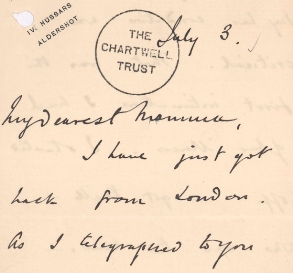 IV. HUSSARS
ALDERSHOT
THE
CHARTWELL
TRUST
July 3.
My dearest Mamma,
I have just got
back from London.
As I telegraphed to you